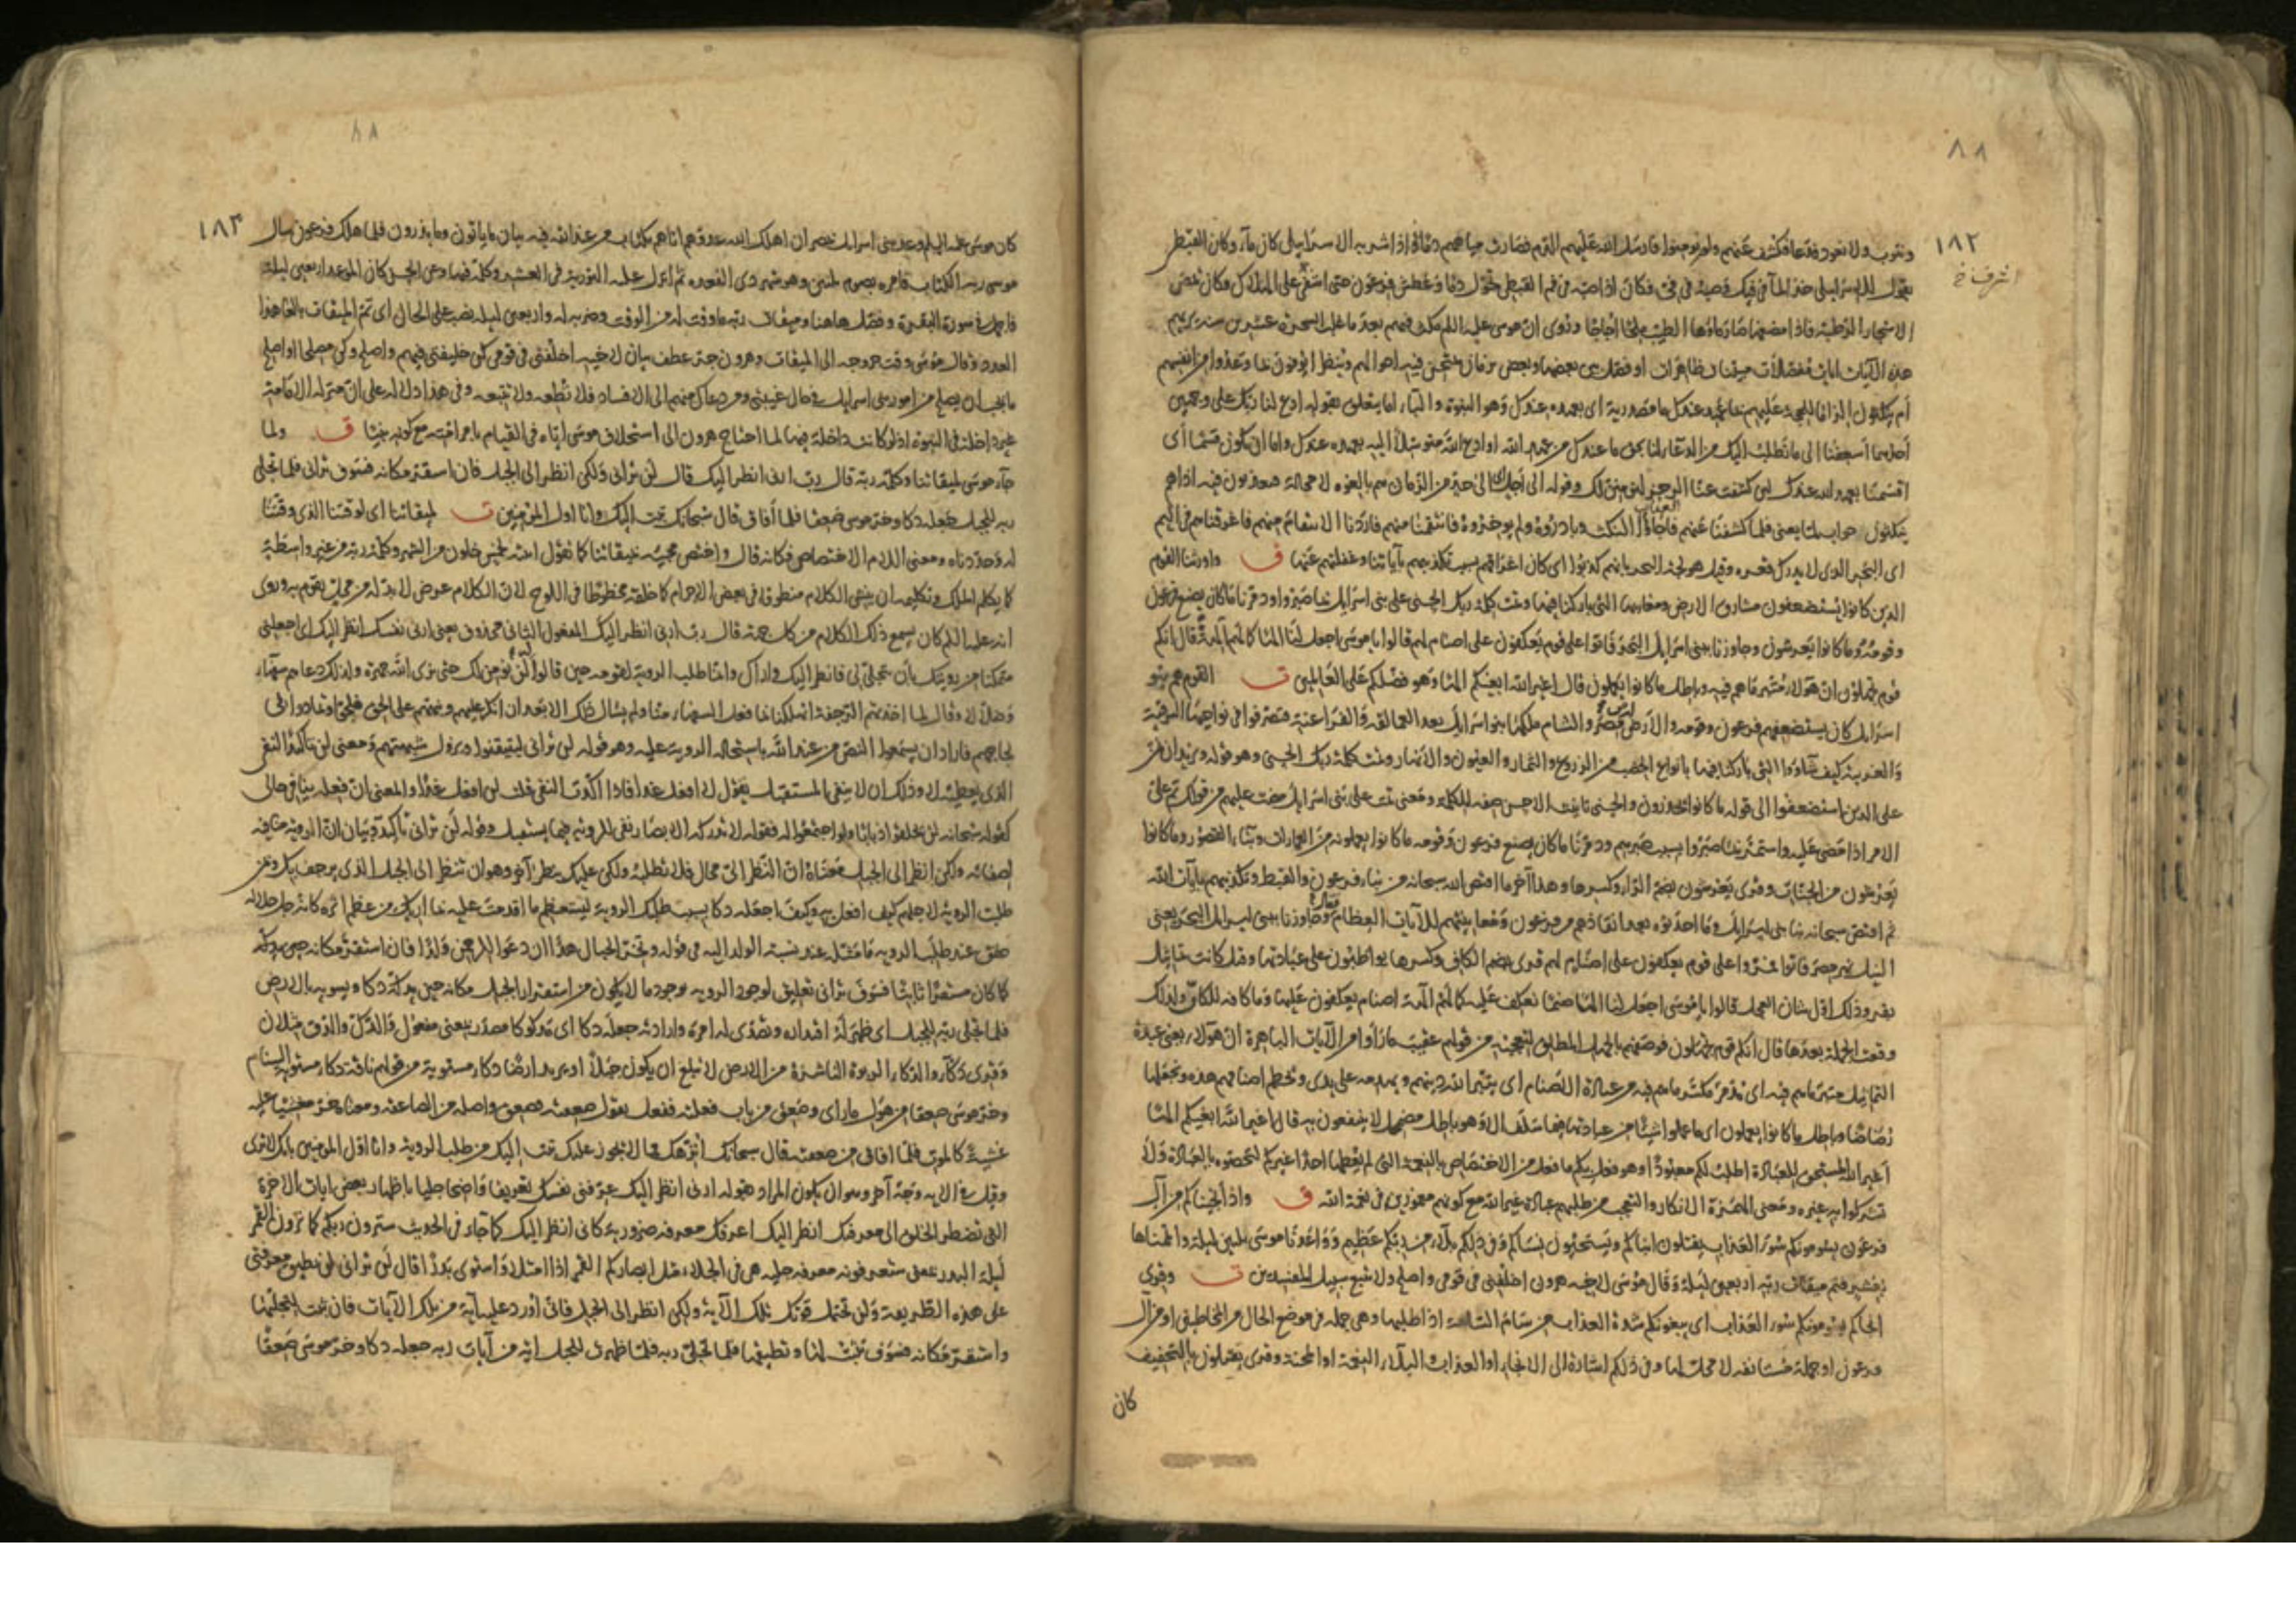 ٨٨
١٨٢
ونتوب ولا نعود فدعا فكشف عنهم ولم يؤمنوا فارسل الله عليهم الدم فصارت مياههم دما فاذا شربه الاسرايلى كان ماء وكان القبطى
يقول للاسرايلى خذ الماء فى فيك وصبه فى فى فكان اذا صبه فى فم القبطى تحول دما وعطش فرعون حتى اشفى على الهلاك فكان يمص
الاشجار الرطبة فاذا مضغها صار ماؤها الطيب ملحا اجاجا وروى ان موسى عليه السلم مكث فيهم بعد ما غلب السحرة عشرين سنة يريهم
هذه الآيات ايات مفصلات مبينات ظاهرات او فصل بين بعضها وبعض بزمان يمتحن فيه احوالهم وينظر ايوفون بما وعدوا من انفسهم
ام ينكثون الزاما للحجة عليهم بما عهد عندك ما مصدرية اى بعهده عندك وهو النبوة والباء اما يتعلق بقوله ادع لنا ربك على وجهين
احدهما اسعفنا الى ما نطلب اليك من الدعاء لنا بحق ما عندك من عهد الله او ادع الله متوسلا اليه بعهده عندك واما ان يكون قسما اى
اقسمنا بعهد الله عندك لئن كشفت عنا الرجز لنؤمنن لك وقوله الى اجل الى حد من الزمان هم بالغوه لا محالة معذبون فيه اذا هم
ينكثون جواب لما يعنى فلما كشفنا عنهم فاجاؤا النكث وبادروه ولم يؤخروه فانتقمنا منهم فاردنا الانتقام منهم فاغرقناهم فى اليم
اى البحر الذى لا يدرك قعره وقيل هو لجة البحر بانهم كذبوا اى كان اغراقهم بسبب تكذيبهم بآياتنا وغفلتهم عنها ق واورثنا القوم
الذين كانوا يستضعفون مشارق الارض ومغاربها التى باركنا فيها وتمت كلمة ربك الحسنى على بنى اسرايل بما صبروا ودمرنا ما كان يصنع فرعون
وقومه وما كانوا يعرشون وجاوزنا ببنى اسرايل البحر فاتوا على قوم يعكفون على اصنام لهم قالوا يا موسى اجعل لنا الها كما لهم آلهة قال انكم
قوم تجهلون ان هؤلاء متبر ما هم فيه وباطل ما كانوا يعملون قال اغير الله ابغيكم الها وهو فضلكم على العالمين ت القوم هم بنو
اسرايل كان يستضعفهم فرعون وقومه والارض ارض مصر والشام ملكها بنو اسرايل بعد العمالقة والفراعنة فتصرفوا فى نواحيها الشرقية
والغربية كيف شاؤوا التى باركنا فيها بانواع الخصب من الزروع والثمار والعيون والانهار وتمت كلمة ربك الحسنى وهو قوله ونريد ان نمن
على الذين استضعفوا الى قوله ما كانوا يحذرون والحسنى تانيث الاحسن صفة للكلمة ومعنى تمت على بنى اسرايل مضت عليهم من قولك تم على
الامر اذا مضى عليه واستمر بما صبروا بسبب صبرهم ودمرنا ما كان يصنع فرعون وقومه ما كانوا يعملونه من العمارات وبناء القصور وما كانوا
يعرشون من الجنات وقرى يعرشون بضم الراء وكسرها وهذا آخر ما اقتص الله سبحانه من نباء فرعون والقبط وتكذيبهم بآيات الله
ثم اقتص سبحانه نبا بنى اسرايل وما احدثوه بعد انقاذهم من فرعون ومعاينتهم للآيات العظام وجاوزنا ببنى اسرايل البحر يعنى
النيل نهر مصر فاتوا فمروا على قوم يعكفون على اصنام لهم قرى بضم الكاف وكسرها يواظبون على عبادتها وقيل كانت تماثيل
بقر وذلك اول شان العجل قالوا يا موسى اجعل لنا الها صنما نعكف عليه كما لهم آلهة اصنام يعكفون عليها وما كافه للكاف ولذلك
وقعت الجملة بعدها قال انكم قوم تجهلون فوصفهم بالجهل المطلق لتعجبه من قولهم عقيب ما راوا من الآيات الباهرة ان هؤلاء يعنى عبدة
التماثيل متبر ما هم فيه اى مدمر مكسر ما هم فيه من عبادة الاصنام اى يتبر الله دينهم ويهدمه على يدى ويحطم اصنامهم هذه ويجعلها
رضاضا وباطل ما كانوا يعملون اى ما عملوا شيئا من عبادتها فيما سلف الا وهو باطل مضمحل لا ينتفعون به قال اغير الله ابغيكم الها
اغير الله المستحق للعبادة اطلب لكم معبودا وهو فعل بكم ما فعل من الاختصاص بالنعمة التى لم يعطها احدا غيركم لتختصوه بالعبادة ولا
تشركوا به غيره ومعنى الهمزة الانكار والتعجب من طلبهم عبادة غير الله مع كونهم مغمورين فى نعمة الله ق واذ انجيناكم من آل
فرعون يسومونكم سوء العذاب يقتلون ابناءكم ويستحيون نساءكم وفى ذلكم بلاء من ربكم عظيم وواعدنا موسى ثلثين ليلة واتممناها
بعشر فتم ميقات ربه اربعين ليلة وقال موسى لاخيه هرون اخلفنى فى قومى واصلح ولا تتبع سبيل المفسدين ت وقرى
انجاكم يسومونكم سوء العذاب اى يبغونكم شدة العذاب من سام السلعة اذا طلبها وهى جملة فى موضع الحال من المخاطبين او من آل
فرعون او جملة مستانفة لا محل لها وفى ذلكم اشارة الى الانجاء او العذاب والبلاء النعمة او المحنة وقرى يقتلون بالتخفيف
كان
٨٨
١٨٣
كان موسى عليه السلم وعد بنى اسرايل بمصر ان اهلك الله عدوهم اتاهم بكتاب من عند الله فيه بيان ما ياتون وما يذرون فلما هلك فرعون سال
موسى ربه الكتاب فامره بصوم ثلثين وهو شهر ذى القعدة ثم انزل عليه التورية فى العشر وكلمه فيها وعن الحسن كان الموعد اربعين ليلة
فاجمل فى سورة البقرة وفصل هاهنا وميقات ربه ما وقت له من الوقت وضربه له واربعين ليلة نصب على الحال اى تم الميقات بالغا هذا
العدد وقال موسى وقت خروجه الى الميقات وهرون جر عطف بيان لاخيه اخلفنى فى قومى كن خليفتى فيهم واصلح وكن مصلحا او اصلح
ما يجب ان يصلح من امور بنى اسرايل فى حال غيبتى ومن دعاك منهم الى الافساد فلا تطعه ولا تتبعه وفى هذا دلالة على ان منزلة الامامة
غير داخلة فى النبوة اذ لو كانت داخلة فيها لما احتاج هرون الى استخلاف موسى اياه فى القيام بامر امته مع كونه نبيا ق ولما
جاء موسى لميقاتنا وكلمه ربه قال رب ارنى انظر اليك قال لن ترانى ولكن انظر الى الجبل فان استقر مكانه فسوف ترانى فلما تجلى
ربه للجبل جعله دكا وخر موسى صعقا فلما افاق قال سبحانك تبت اليك وانا اول المؤمنين ت لميقاتنا اى لوقتنا الذى وقتنا
له وحددناه ومعنى اللام الاختصاص فكانه قال واختص مجيئه بميقاتنا كما تقول اتيته لخمس خلون من الشهر وكلمه ربه من غير واسطة
كما يكلم الملك وتكليمه ان ينشئ الكلام منطوقا فى بعض الاجرام كما خلقه مخطوطا فى اللوح لان الكلام عرض لا بد له من محل يقوم به وروى
انه عليه السلم كان يسمع ذلك الكلام من كل جهة قال رب ارنى انظر اليك المفعول الثانى محذوف يعنى ارنى نفسك انظر اليك اى اجعلنى
متمكنا من رؤيتك بان تتجلى لى فانظر اليك واراك وانما طلب الرؤية لقومه حين قالوا لن نؤمن لك حتى نرى الله جهرة ولذلك دعاهم سفهاء
وضلالا وقال لما اخذتهم الرجفة اتهلكنا بما فعل السفهاء منا ولم يسال ذلك الا بعد ان انكر عليهم ونبههم على الحق فلجوا وتمادوا فى
لجاجهم فاراد ان يسمعوا النص من عند الله باستحالة الرؤية عليه وهو قوله لن ترانى ليتيقنوا ويزول شبهتهم ومعنى لن تاكيد النفى
الذى يعطيه لا وذلك ان لا ينفى المستقبل يقول لا افعل غدا فاذا اكدت النفى قلت لن افعل غدا والمعنى ان فعله ينافى حالى
كقوله سبحانه لن يخلقوا ذبابا ولو اجتمعوا له فقوله لا تدركه الابصار نفى للرؤية فيما يستقبل وقوله لن ترانى تاكيد وبيان ان الرؤية منافية
لصفاته ولكن انظر الى الجبل معناه ان النظر الى محال فلا تطلبه ولكن عليك بنظر آخر وهو ان تنظر الى الجبل الذى يرجف بك وبمن
طلبت الرؤية لاجلهم كيف افعل به وكيف اجعله دكا بسبب طلبك الرؤية لتستعظم ما اقدمت عليه بما اريك من عظم اثره كانه جل جلاله
حقق عند طلب الرؤية ما مثله عند نسبة الولد اليه فى قوله وتخر الجبال هدا ان دعوا للرحمن ولدا فان استقر مكانه حين يدكه
كما كان مستقرا ثابتا فسوف ترانى تعليق لوجود الرؤية بوجود ما لا يكون من استقرار الجبل مكانه حين يدكه دكا ويسويه بالارض
فلما تجلى ربه للجبل اى ظهر له اقتداره وتصدى له امره وارادته جعله دكا اى مدكوكا مصدر بمعنى مفعول والدك والدق مثلان
وقرى دكاء والدكاء الربوة الناشزة من الارض لا تبلغ ان يكون جبلا او يريد ارضا دكاء مستوية من قولهم ناقة دكاء مستوية السنام
وخر موسى صعقا من هول ما راى وصعق من باب فعلته ففعل يقول صعقته فصعق واصله من الصاعقة ومعناه خر مغشيا عليه
غشية كالموت فلما افاق من صعقته قال سبحانك انزهك مما لا يجوز عليك تبت اليك من طلب الرؤية وانا اول المؤمنين بانك لا ترى
وقيل فى الاية وجه آخر وهو ان يكون المراد بقوله ارنى انظر اليك عرفنى نفسك تعريفا واضحا جليا باظهار بعض ايات الاخرة
التى تضطر الخلق الى معرفتك انظر اليك اعرفك معرفة ضرورية كانى انظر اليك كما جاء فى الحديث سترون ربكم كما ترون القمر
ليلة البدر بمعنى ستعرفونه معرفة جلية هى فى الجلاء مثل ابصاركم القمر اذا امتلا واستوى بدرا قال لن ترانى لن تطيق معرفتى
على هذه الطريقة ولن تحتمل قوتك تلك الآية ولكن انظر الى الجبل فانى اورد عليه آية من تلك الآيات فان ثبت لتجليها
واستقر مكانه فسوف تثبت لها وتطيقها فلما تجلى ربه فلما ظهرت للجبل اية من آيات ربه جعله دكا وخر موسى صعقا